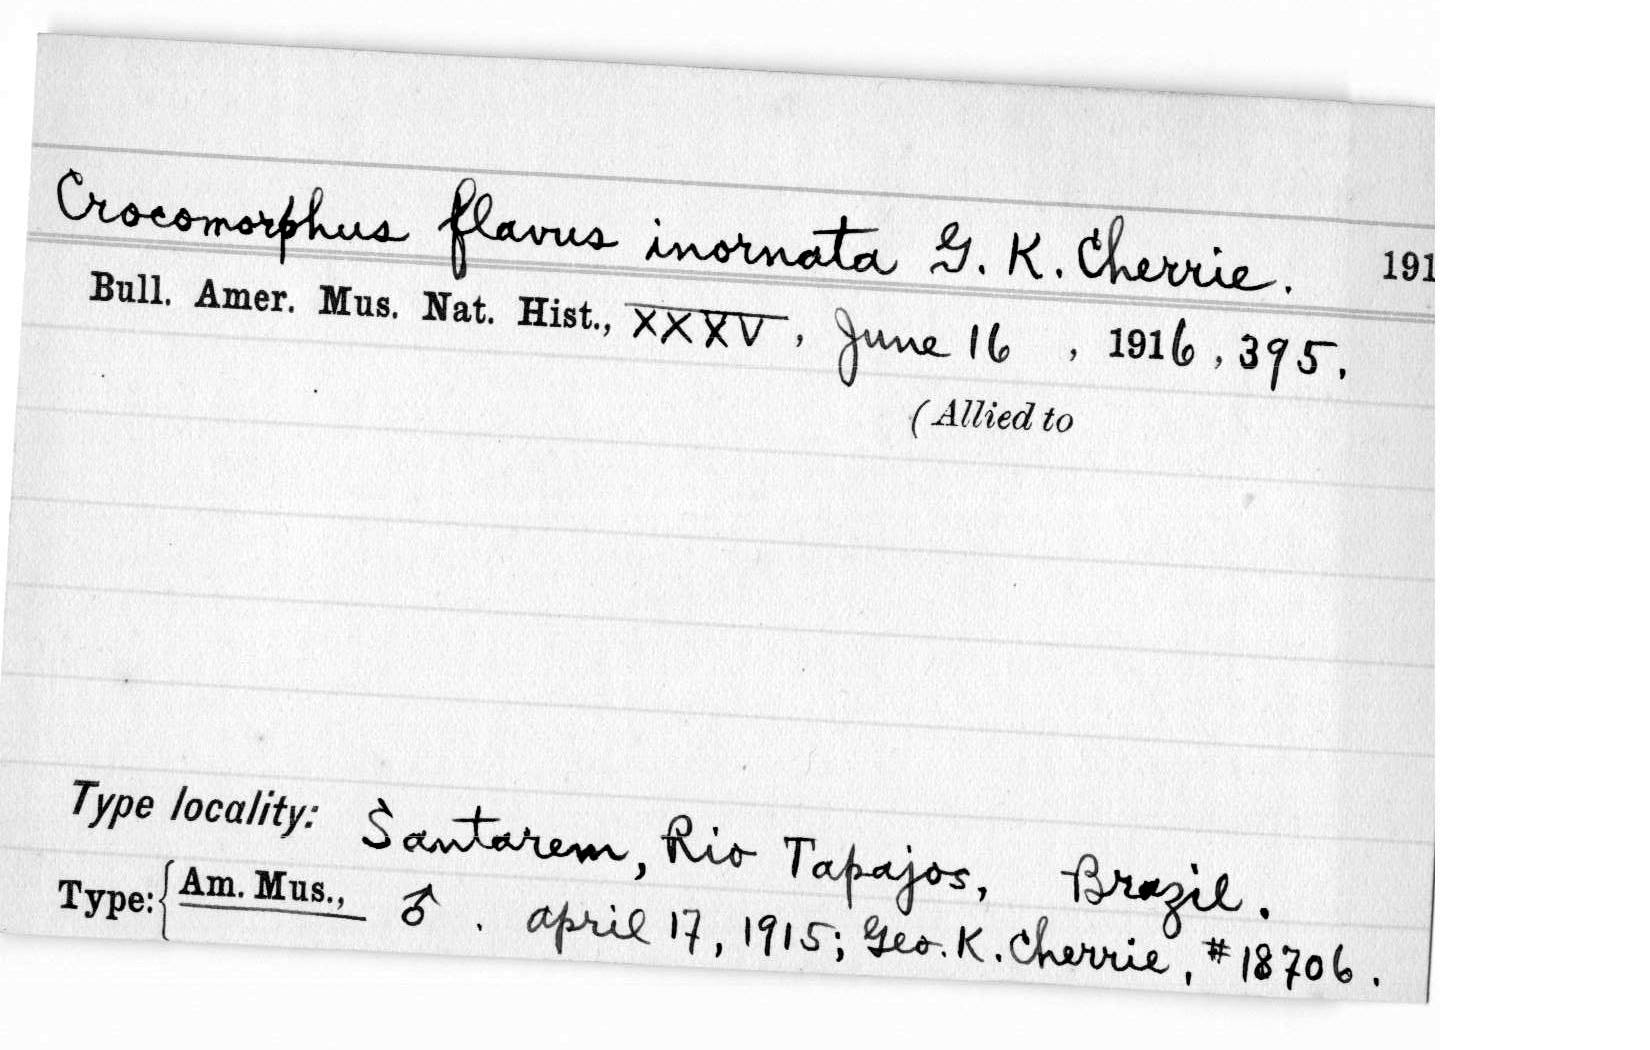 Crocomorphus flavus inornata G. K. Cherrie. 191
Bull. Amer. Mus. Nat. Hist., XXXV, June 16 , 1916, 395.
(Allied to
Type locality: Santarem, Rio Tapajos, Brazil.
Type: { Am. Mus., ♂ . april 17, 1915; Geo. K. Cherrie, #18706.